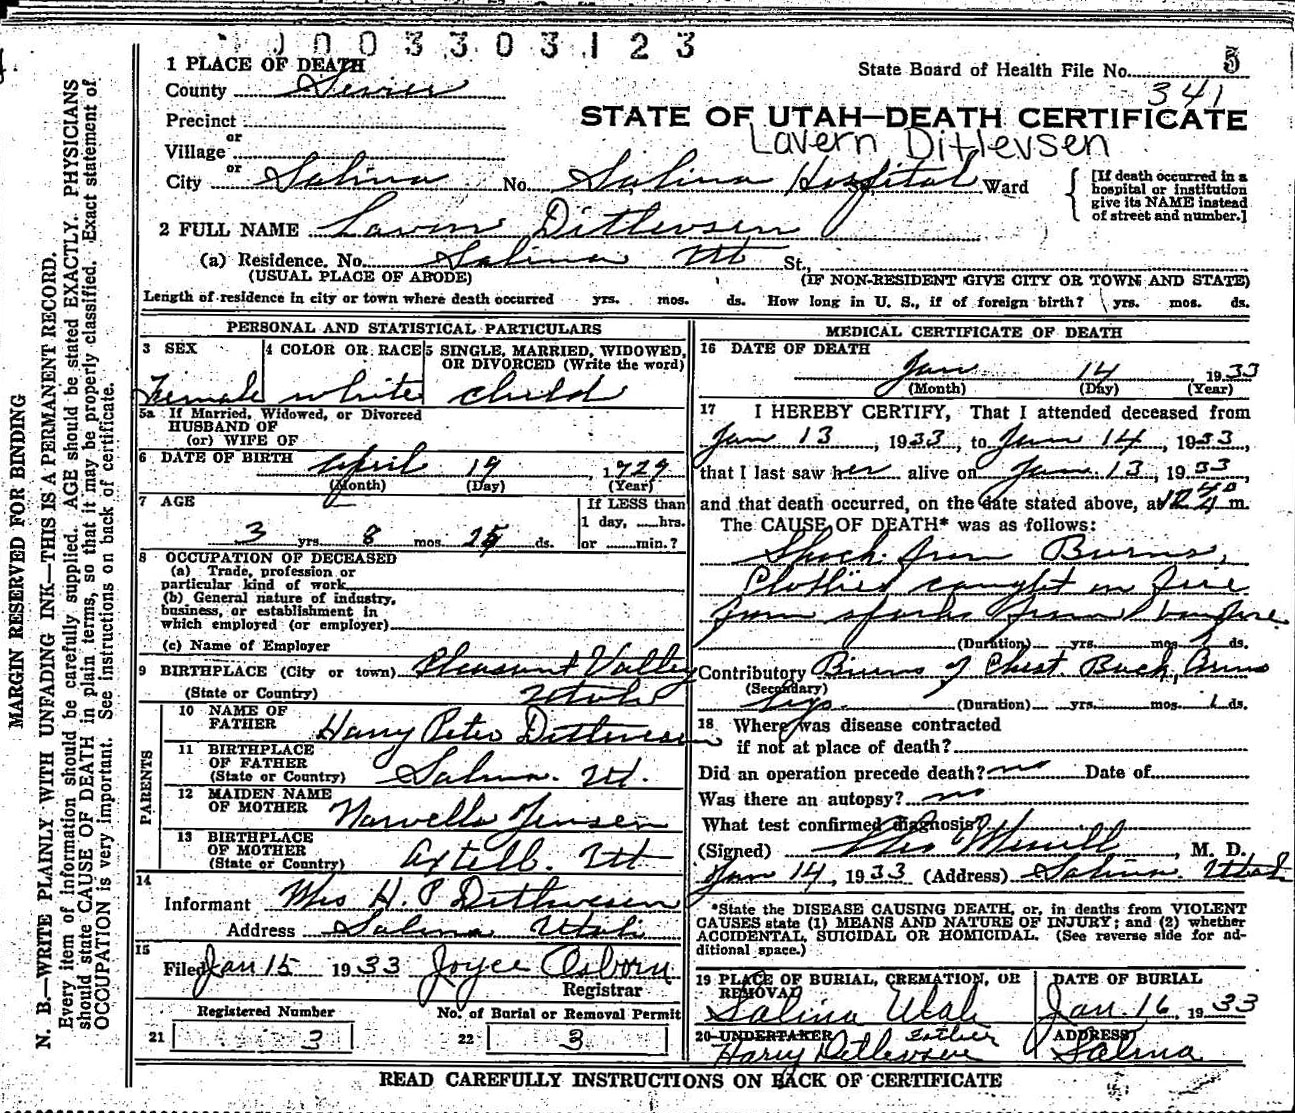 0003303123
1 PLACE OF DEATH
State Board of Health File No. 5
County Sevier
341
Precinct
STATE OF UTAH—DEATH CERTIFICATE
or
Lavern Ditlevsen
Village
or
City Salina No. Salina Hospital Ward
[If death occurred in a
hospital or institution
give its NAME instead
of street and number.]
2 FULL NAME Lavern Ditlevsen
(a) Residence. No. Salina Ut St.,
(USUAL PLACE OF ABODE) (IF NON-RESIDENT GIVE CITY OR TOWN AND STATE)
Length of residence in city or town where death occurred yrs. mos. ds. How long in U. S., if of foreign birth? yrs. mos. ds.
PERSONAL AND STATISTICAL PARTICULARS
3 SEX 4 COLOR OR RACE 5 SINGLE, MARRIED, WIDOWED,
OR DIVORCED (Write the word)
Female white child
5a If Married, Widowed, or Divorced
HUSBAND OF
(or) WIFE OF
6 DATE OF BIRTH April 19 1929
(Month) (Day) (Year)
7 AGE If LESS than
1 day, ....hrs.
3 yrs. 8 mos. 25 ds. or ....min.?
8 OCCUPATION OF DECEASED
(a) Trade, profession or
particular kind of work
(b) General nature of industry,
business, or establishment in
which employed (or employer)
(c) Name of Employer
9 BIRTHPLACE (City or town) Pleasant Valley
(State or Country) Utah
PARENTS
10 NAME OF
FATHER Harry Peter Ditlevsen
11 BIRTHPLACE
OF FATHER
(State or Country) Salina. Ut.
12 MAIDEN NAME
OF MOTHER Norvella Jensen
13 BIRTHPLACE
OF MOTHER
(State or Country) Axtell. Ut
14
Informant Mrs H. P Ditlevsen
Address Salina Utah
15
Filed Jan 15 1933 Joyce Osborn
Registrar
Registered Number No. of Burial or Removal Permit
21 3 22 3
MEDICAL CERTIFICATE OF DEATH
16 DATE OF DEATH
Jan 14 1933
(Month) (Day) (Year)
17 I HEREBY CERTIFY, That I attended deceased from
Jan 13, 1933, to Jan 14, 1933,
that I last saw her alive on Jan. 13, 1933,
and that death occurred, on the date stated above, at m.
The CAUSE OF DEATH* was as follows:
Shock from Burns,
Clothes caught on fire
from sparks from bonfire
(Duration) yrs. mos. ds.
Contributory Burns of Chest. Back, Arms
(Secondary)
Legs. (Duration) yrs. mos. 1 ds.
18 Where was disease contracted
if not at place of death?
Did an operation precede death? no Date of
Was there an autopsy? no
What test confirmed diagnosis?
(Signed) Merrill, M. D.
Jan 14, 1933 (Address) Salina. Utah
*State the DISEASE CAUSING DEATH, or, in deaths from VIOLENT
CAUSES state (1) MEANS AND NATURE OF INJURY; and (2) whether
ACCIDENTAL, SUICIDAL OR HOMICIDAL. (See reverse side for ad-
ditional space.)
19 PLACE OF BURIAL, CREMATION, OR
REMOVAL DATE OF BURIAL
Salina Utah Jan. 16, 1933
20 UNDERTAKER Father ADDRESS
Harry Ditlevsen Salina
READ CAREFULLY INSTRUCTIONS ON BACK OF CERTIFICATE
MARGIN RESERVED FOR BINDING
N. B.—WRITE PLAINLY WITH UNFADING INK—THIS IS A PERMANENT RECORD.
Every item of information should be carefully supplied. AGE should be stated EXACTLY. PHYSICIANS
should state CAUSE OF DEATH in plain terms, so that it may be properly classified. Exact statement of
OCCUPATION is very important. See instructions on back of certificate.